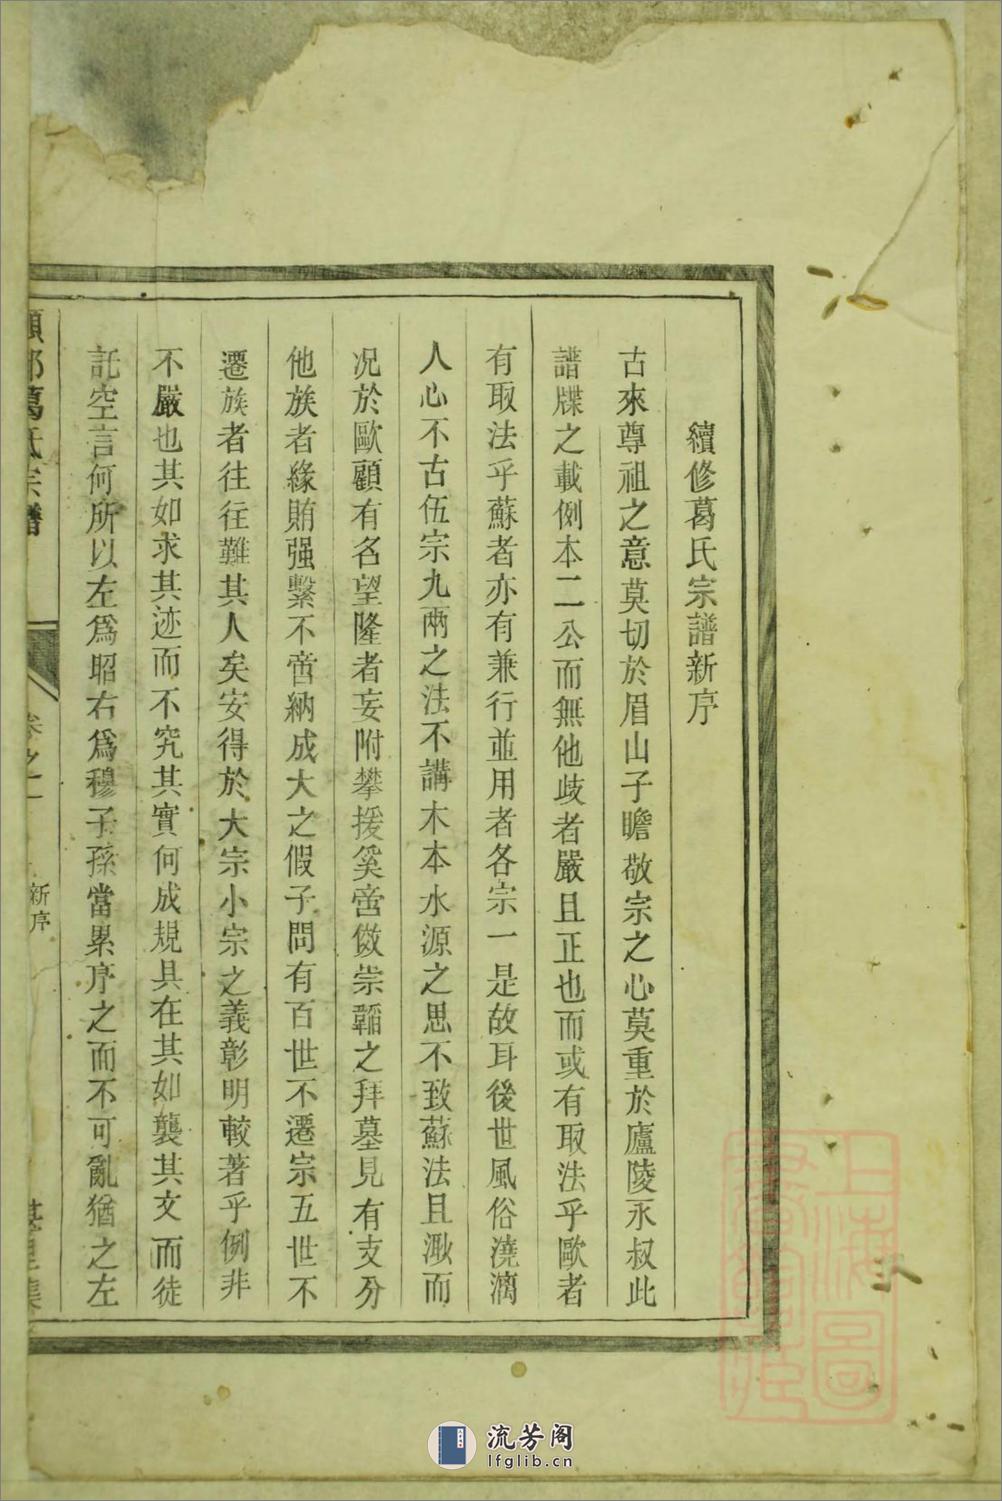 續修葛氏宗譜新序
古來尊祖之意莫切於眉山子瞻敬宗之心莫重於廬陵永叔此
譜牒之載例本二公而無他歧者嚴且正也而或有取法乎歐者
有取法乎蘇者亦有兼行並用者各宗一是故耳後世風俗澆漓
人心不古伍宗九兩之法不講木本水源之思不致蘇法且漸而
况於歐顧有名望隆者妄附攀援奚啻傚崇韜之拜墓見有支分
他族者緣賄强繫不啻納成大之假子問有百世不遷宗五世不
遷族者往往難其人矣安得於大宗小宗之義彰明較著乎例非
不嚴也其如求其迹而不究其實何成規具在其如襲其文而徒
託空言何所以左爲昭右爲穆子孫當累序之而不可亂猶之左
葛氏宗譜
卷之一
新序
上海圖書館藏
流芳阁
lfglib.cn